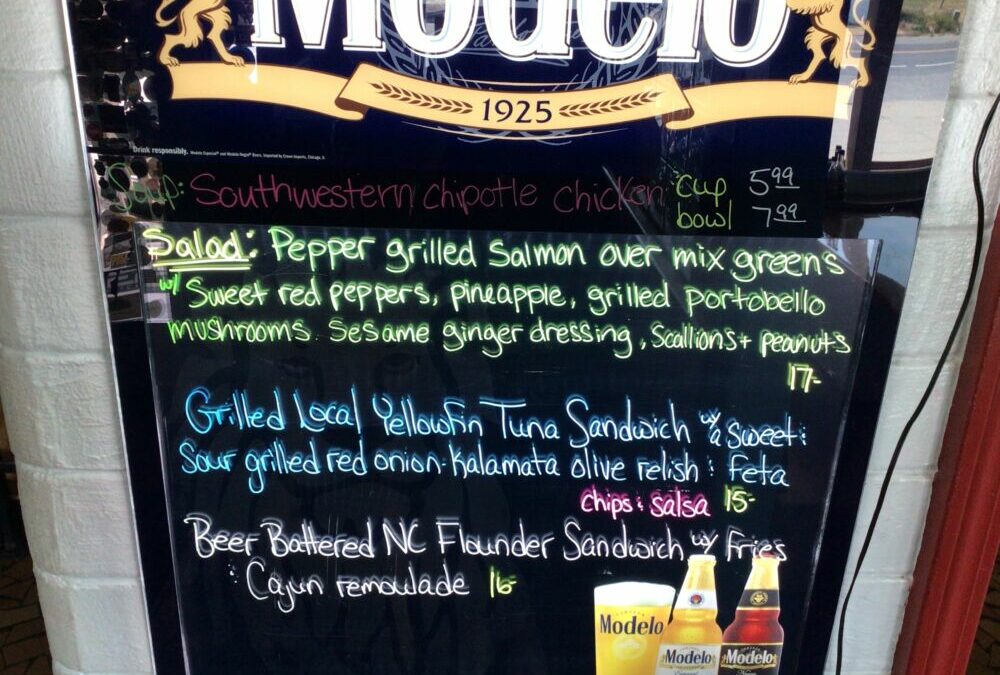 Modelo
1925
Drink responsibly. Modelo Especial® and Modelo Negra® Beers. Imported by Crown Imports, Chicago, IL
Soup: Southwestern chipotle chicken cup 5.99
bowl 7.99
Salad: Pepper grilled Salmon over mix greens
w/ Sweet red peppers, pineapple, grilled portobello
mushrooms. Sesame ginger dressing, Scallions + peanuts
17-
Grilled Local Yellowfin Tuna Sandwich w/ a Sweet :
Sour grilled red onion-Kalamata olive relish : feta
chips : salsa 15-
Beer Battered NC Flounder Sandwich w/ Fries
: Cajun remoulade 16-
Modelo
Modelo Modelo